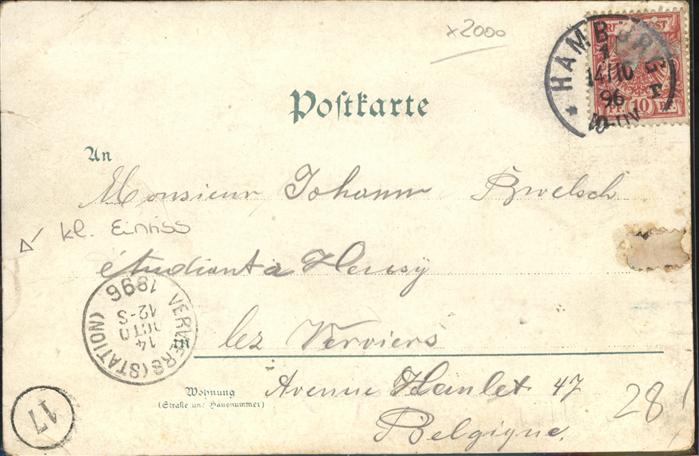 x2000
HAMBURG
1
14/10
96
10-11V
10
Postkarte
An
Monsieur Johann
kl. Einriss
étudiant a Heusy
VERVIERS (STATION)
14
OCTO
12-S
1896
in lez Verviers
Wohnung
(Straße und Hausnummer)
Avenue Hamlet 47
28
Belgique.
17